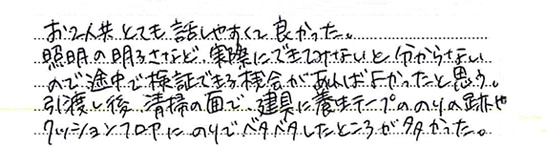 お2人共とても話しやすくて良かった。
照明の明るさなど、実際にできてみないと分からない
ので途中で検証できる機会があればよかったと思う。
引渡し後、清掃の面で、建具に養生テープののりの跡や
クッションフロアにのりでベタベタしたところが多かった。